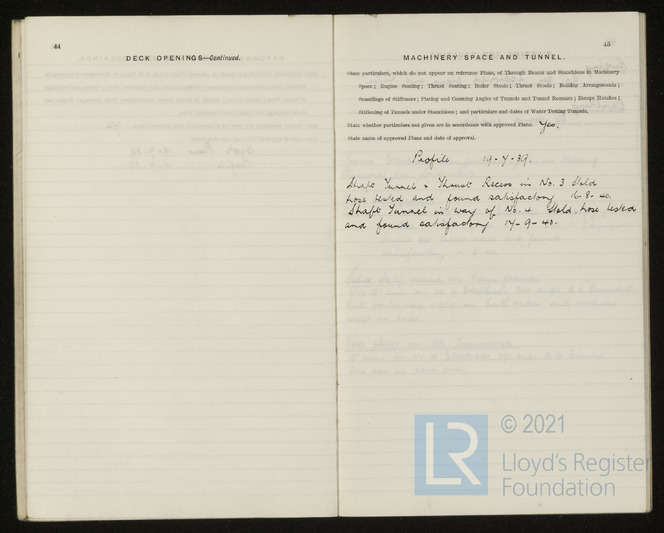 44
DECK OPENINGS—Continued.
45
MACHINERY SPACE AND TUNNEL.
State particulars, which do not appear on reference Plans, of Through Beams and Stanchions in Machinery
Space; Engine Seating; Thrust Seating; Boiler Stools; Thrust Stools; Boxing Arrangements;
Scantlings of Stiffeners; Plating and Coaming Angles of Tunnels and Tunnel Recesses; Escape Hatches;
Stiffening of Tunnels under Stanchions; and particulars and dates of Water Testing Tunnels.
State whether particulars not given are in accordance with approved Plans. Yes.
State name of approved Plans and date of approval.
Profile 19-7-39.
Shaft Tunnel & Thrust Recess in No. 3 Hold
hose tested and found satisfactory 16-8-40.
Shaft Tunnel in way of No. 4 Hold, hose tested
and found satisfactory 17-9-40.
LR
© 2021
Lloyd's Register
Foundation